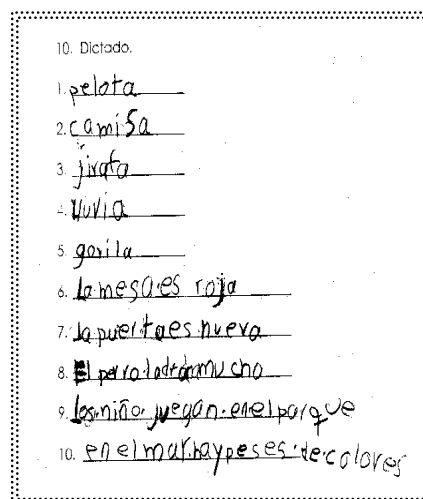 10. Dictado.
1. pelota
2. camisa
3. jirafa
4. lluvia
5. gorila
6. la mesa es roja
7. la puerta es nueva
8. El perro ladra mucho
9. los niño juegan en el parque
10. en el mar hay peses de colores